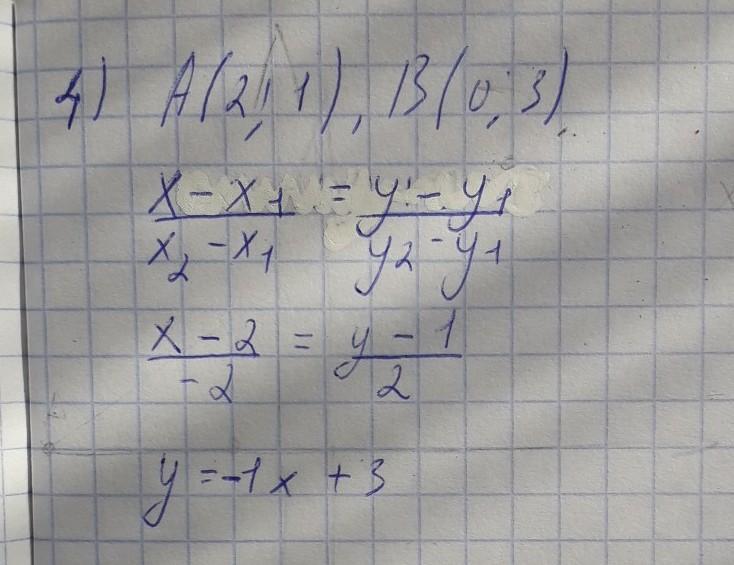 4) A(2; 1), B(0; 3)
x - x₁ / x₂ - x₁ = y - y₁ / y₂ - y₁
x - 2 / -2 = y - 1 / 2
y = -1x + 3